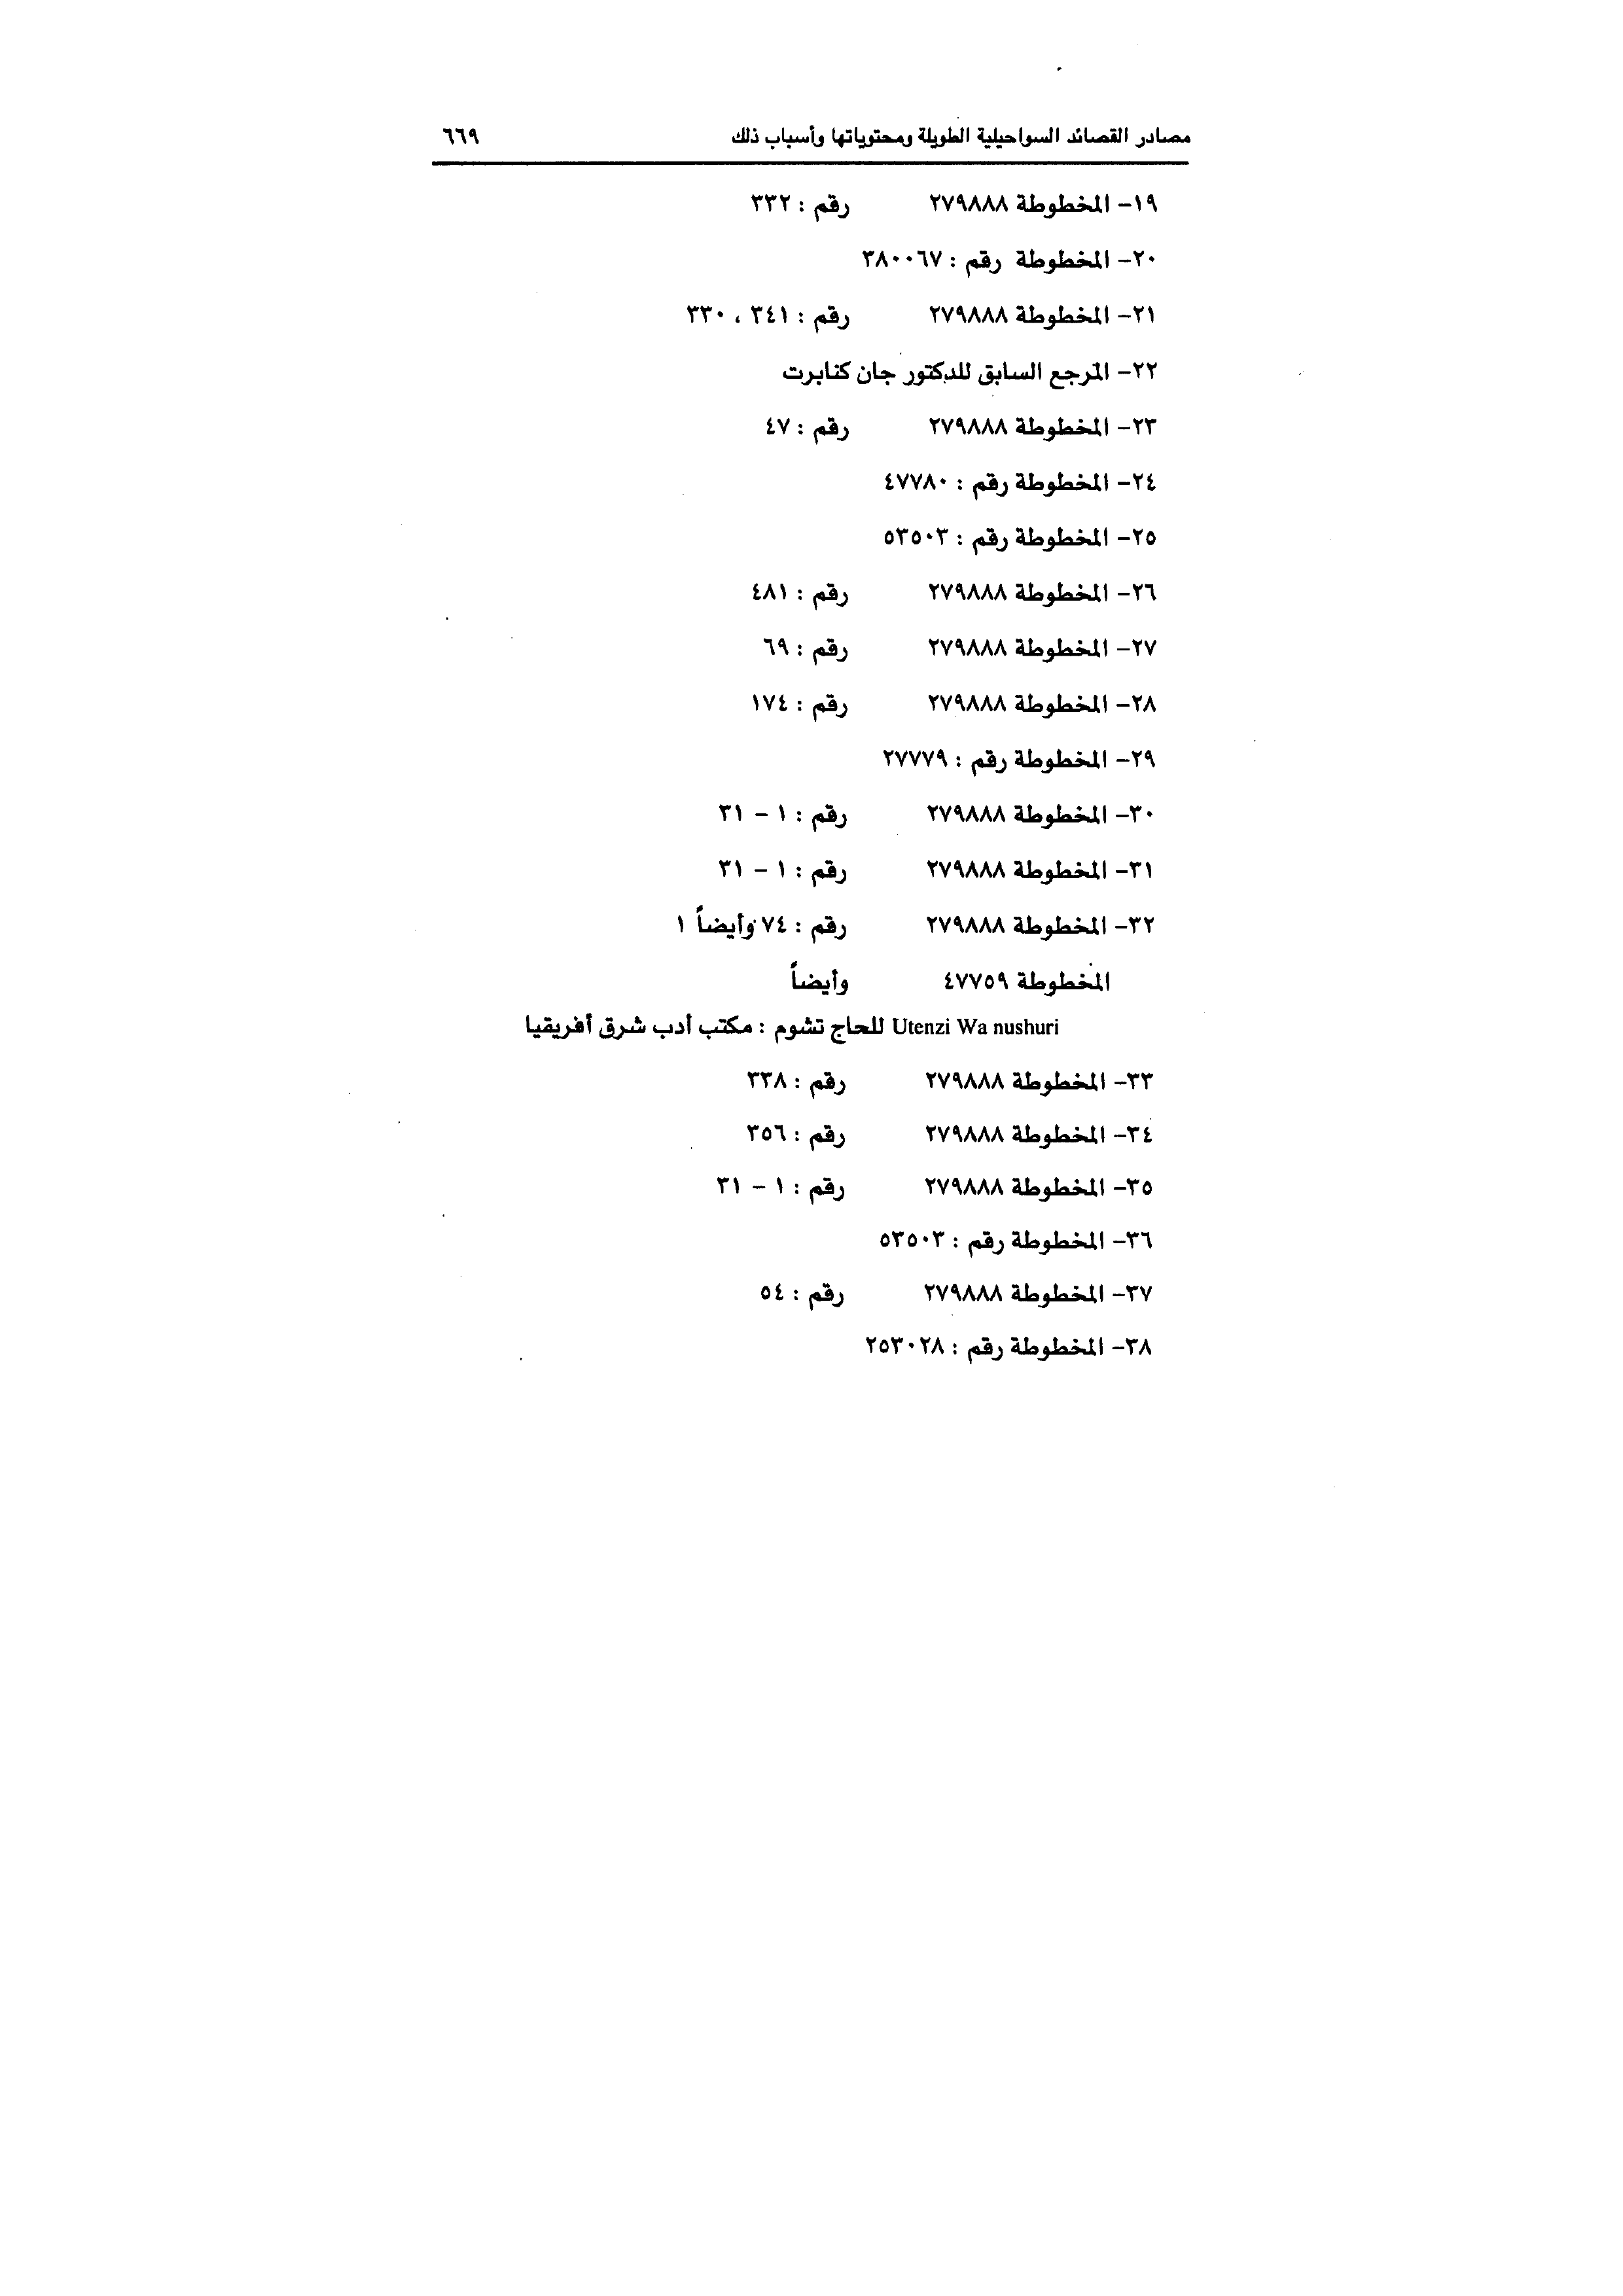 مصادر القصائد السواحيلية الطويلة ومحتوياتها وأسباب ذلك ٦٦٩
١٩- المخطوطة ٢٧٩٨٨٨ رقم : ٣٣٢
٢٠- المخطوطة رقم : ٣٨٠٠٦٧
٢١- المخطوطة ٢٧٩٨٨٨ رقم : ٣٤١ ، ٣٣٠
٢٢- المرجع السابق للدكتور جان كنابرت
٢٣- المخطوطة ٢٧٩٨٨٨ رقم : ٤٧
٢٤- المخطوطة رقم : ٤٧٧٨٠
٢٥- المخطوطة رقم : ٥٣٥٠٣
٢٦- المخطوطة ٢٧٩٨٨٨ رقم : ٤٨١
٢٧- المخطوطة ٢٧٩٨٨٨ رقم : ٦٩
٢٨- المخطوطة ٢٧٩٨٨٨ رقم : ١٧٤
٢٩- المخطوطة رقم : ٢٧٧٧٩
٣٠- المخطوطة ٢٧٩٨٨٨ رقم : ١ - ٣١
٣١- المخطوطة ٢٧٩٨٨٨ رقم : ١ - ٣١
٣٢- المخطوطة ٢٧٩٨٨٨ رقم : ٧٤ وأيضاً ١
المخطوطة ٤٧٧٥٩ وأيضاً
Utenzi Wa nushuri للحاج تشوم : مكتب أدب شرق أفريقيا
٣٣- المخطوطة ٢٧٩٨٨٨ رقم : ٣٣٨
٣٤- المخطوطة ٢٧٩٨٨٨ رقم : ٣٥٦
٣٥- المخطوطة ٢٧٩٨٨٨ رقم : ١ - ٣١
٣٦- المخطوطة رقم : ٥٣٥٠٣
٣٧- المخطوطة ٢٧٩٨٨٨ رقم : ٥٤
٣٨- المخطوطة رقم : ٢٥٣٠٢٨